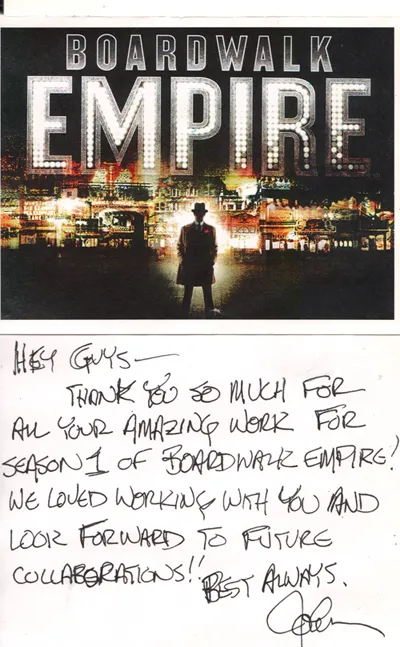 BOARDWALK
EMPIRE
HEY GUYS—
THANK YOU SO MUCH FOR
ALL YOUR AMAZING WORK FOR
SEASON 1 OF BOARDWALK EMPIRE!
WE LOVED WORKING WITH YOU AND
LOOK FORWARD TO FUTURE
COLLABORATIONS!!
BEST ALWAYS.